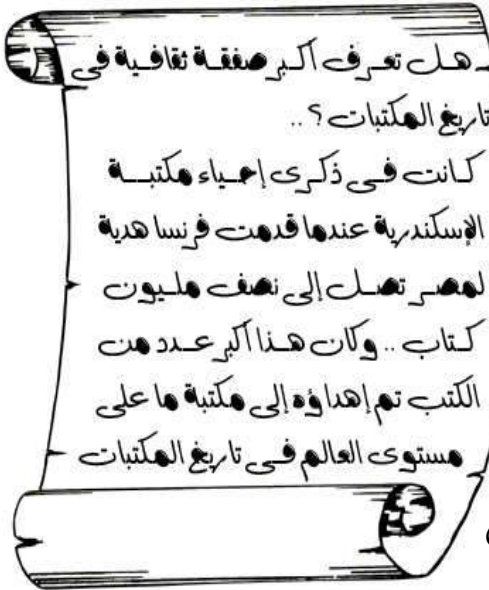 هل تعرف أكبر صفقة ثقافية فى
تاريخ المكتبات ؟ ..
كانت فى ذكرى إحياء مكتبة
الإسكندرية عندما قدمت فرنسا هدية
لمصر تصل إلى نصف مليون
كتاب .. وكان هذا أكبر عدد من
الكتب تم إهداؤه إلى مكتبة ما على
مستوى العالم فى تاريخ المكتبات